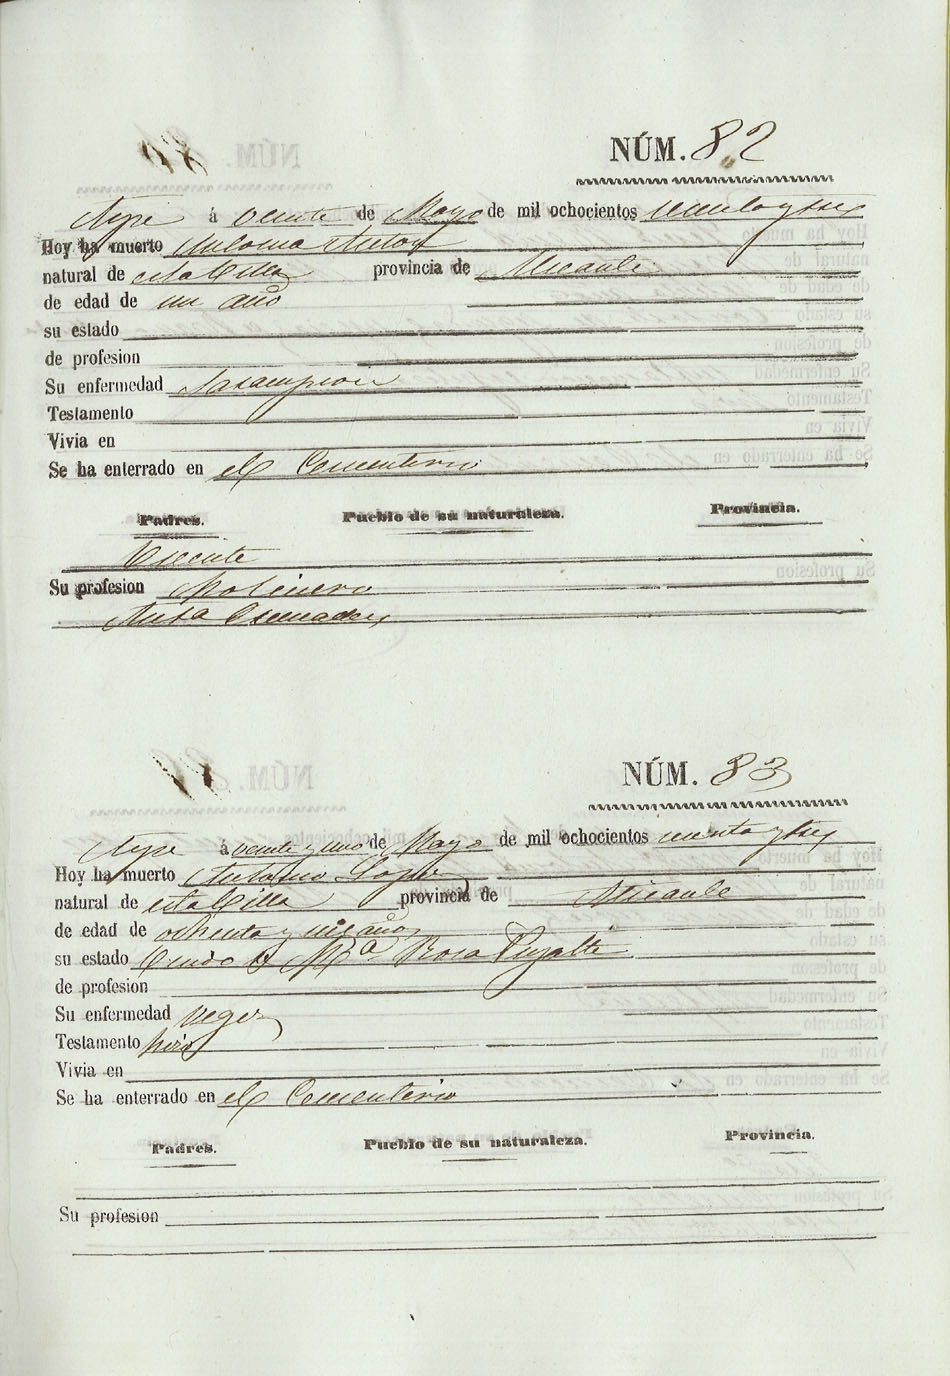 NÚM. 82
Aspe á veinte de Mayo de mil ochocientos
Hoy ha muerto Antonia
natural de esta Villa provincia de Alicante
de edad de un año
su estado
de profesion
Su enfermedad Sarampion
Testamento
Vivia en
Se ha enterrado en el Cementerio
Padres. Pueblo de su naturaleza. Provincia.
Vicente
Su profesion Molinero
NÚM. 83
Aspe á veinte y uno de Mayo de mil ochocientos
Hoy ha muerto Antonio Lopez
natural de esta Villa provincia de Alicante
de edad de ochenta y un años
su estado Viudo de Mª Rosa
de profesion
Su enfermedad vegez
Testamento hizo
Vivia en
Se ha enterrado en el Cementerio
Padres. Pueblo de su naturaleza. Provincia.
Su profesion